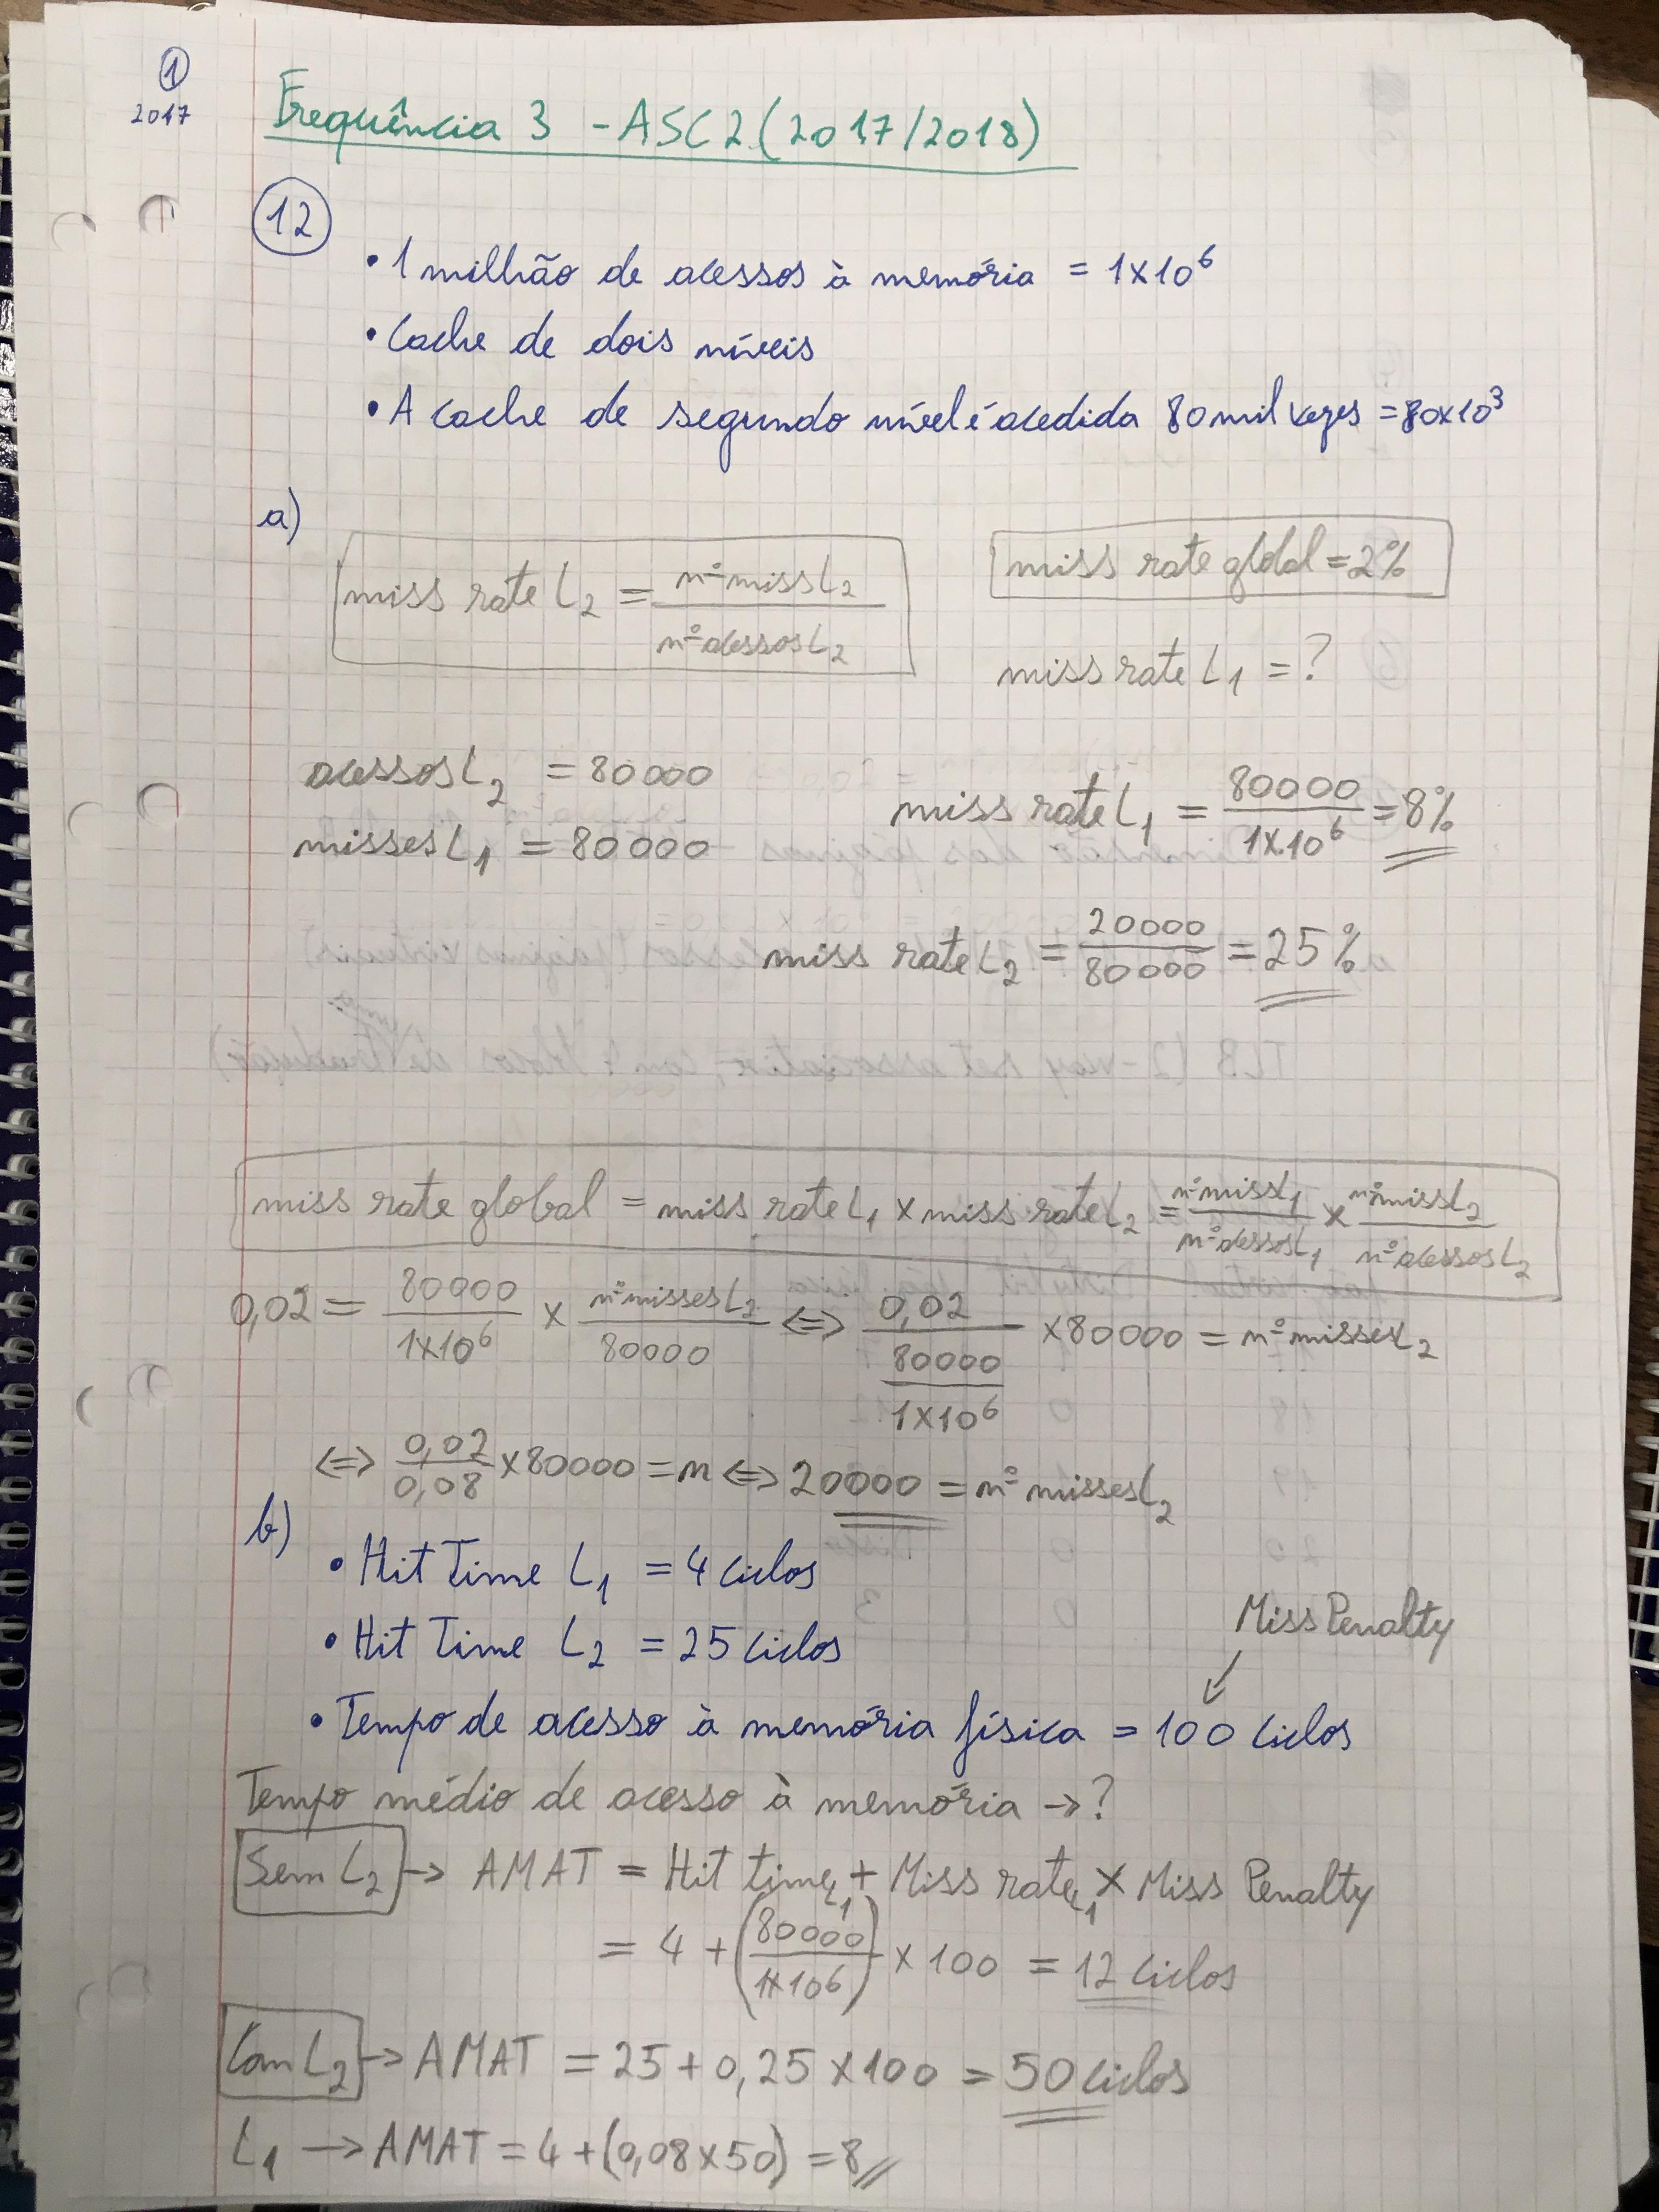 ①
2017
Frequência 3 - ASC2 (2017/2018)
⑫
• 1 milhão de acessos à memória = 1x10⁶
• Cache de dois níveis
• A cache de segundo nível é acedida 80 mil vezes = 80x10³
a)
miss rate L₂ = nº miss L₂ / nº acessos L₂
miss rate global = 2%
miss rate L₁ = ?
acessos L₂ = 80000
misses L₁ = 80000
miss rate L₁ = 80000 / 1x10⁶ = 8%
miss rate L₂ = 20000 / 80000 = 25%
miss rate global = miss rate L₁ x miss rate L₂ = nº miss L₁ / nº acessos L₁ x nº miss L₂ / nº acessos L₂
0,02 = 80000 / 1x10⁶ x nº misses L₂ / 80000 <=> 0,02 / (80000 / 1x10⁶) x 80000 = nº misses L₂
<=> 0,02 / 0,08 x 80000 = n <=> 20000 = nº misses L₂
b)
• Hit Time L₁ = 4 ciclos
• Hit Time L₂ = 25 ciclos
Miss Penalty
• Tempo de acesso à memória física = 100 ciclos
Tempo médio de acesso à memória → ?
Sem L₂ → AMAT = Hit time L₁ + Miss rate L₁ x Miss Penalty
= 4 + (80000 / 1x10⁶) x 100 = 12 ciclos
Com L₂ → AMAT = 25 + 0,25 x 100 = 50 ciclos
L₁ → AMAT = 4 + (0,08 x 50) = 8